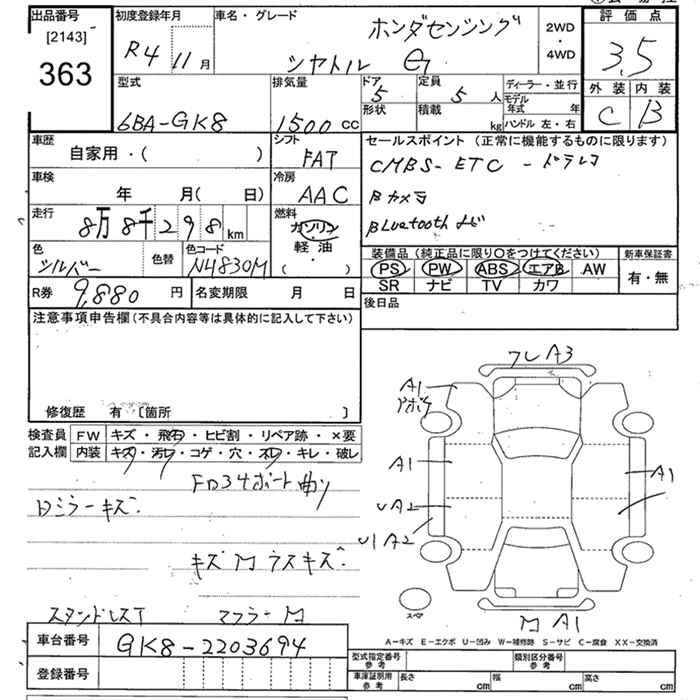 出品番号 初度登録年月 車名・グレード 評価点
[2143] ホンダセンシング 2WD
363 R4 11月 シャトル G ・ 4WD 3.5
型式 排気量 ドア 定員 ディーラー・並行 外装 内装
5 5人 モデル年式 年
6BA-GK8 1500cc 形状 積載 kg ハンドル 左・右 C B
車歴 シフト セールスポイント (正常に機能するものに限ります)
自家用・( ) FAT CMBS- ETC - ドラレコ
車検 冷房
年 月( 日) AAC Bカメラ
走行 燃料
8万8千298km ガソリン Bluetooth ナビ
軽油
色 色替 色コード ( ) 装備品 (純正品に限り○をつけてください) 新車保証書
シルバー N4830M PS PW ABS エアB AW 有・無
R券 9,880円 名変期限 月 日 SR ナビ TV カワ
後日品
注意事項申告欄(不具合内容等は具体的に記入して下さい)
フレA3
A1
A1 A1
修復歴 有 [箇所 ]
検査員 FW キズ・飛石・ヒビ割・リペア跡・×要
記入欄 内装 キズ・汚レ・コゲ・穴・スレ・キレ・破レ
UA2
Dミラーキズ
U1A2
キズ M ラスキズ
スペア
マフラーM
M A1
A-キズ E-エクボ U-凹み W-補修跡 S-サビ C-腐食 XX-交換済
車台番号 GK8-2203694
型式指定番号 参考 類別区分番号 参考
登録番号 車庫証明用 参考 長さ cm 幅 cm 高さ cm